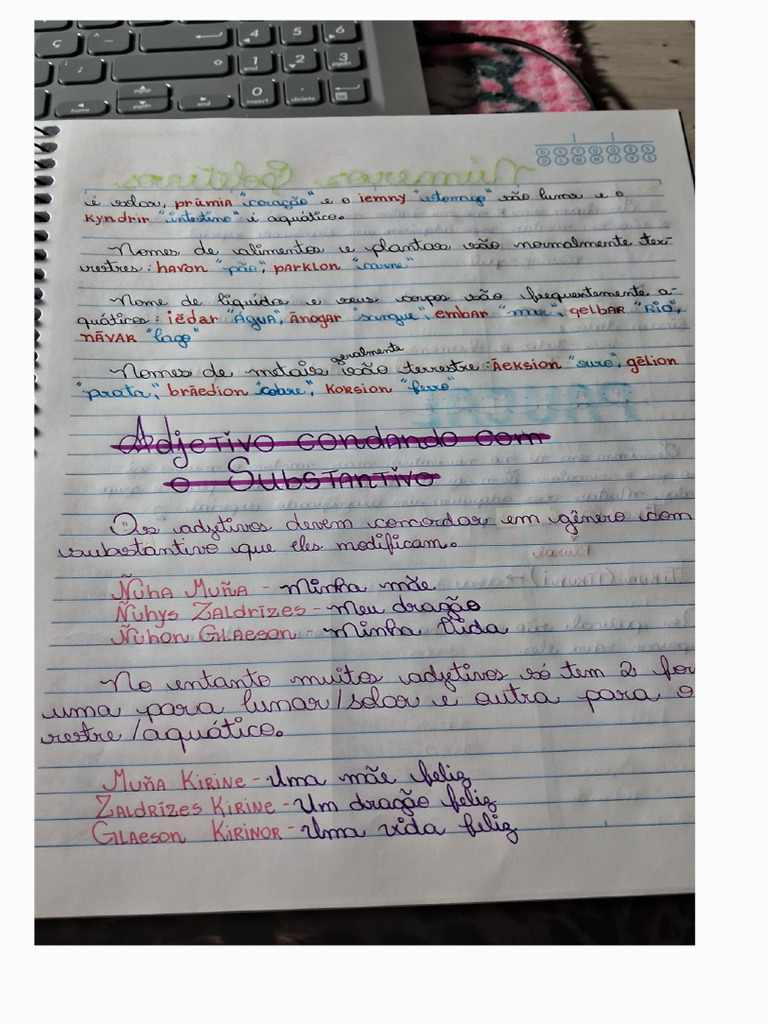 ç ^ ~ 4 5 6
; : 1 2 3
home end 0 insert delete
Números Coletivos
é solar, prūmia "coração" e o iemny "estomago" são lunar e o
kyndrir "intestino" é aquático.
Nomes de alimentos e plantas são normalmente ter-
restres: havon "pão", parklon "carne"
Nome de líquidos e seus corpos são frequentemente a-
quáticos: iēdar "ÁGUA", ānogar "sangue", embar "mar", qelbar "RIO",
nāvar "lago"
Nomes de metais geralmente são terrestre: āeksion "ouro", gēlion
"prata", brāedion "cobre", korsion "ferro"
PAUCAL
Adjetivo condando com
o Substantivo
Os adjetivos devem concordar em gênero com
substantivo que eles modificam.
Ñuha Muña - Minha mãe
Ñuhys Zaldrīzes - Meu dragão
Ñuhon Glaeson - Minha Vida
No entanto muitos adjetivos só tem 2 for
uma para lunar/solar e outra para o
restre/aquático.
Muña Kirine - Uma mãe feliz
Zaldrīzes Kirine - Um dragão feliz
Glaeson Kirinor - Uma vida feliz